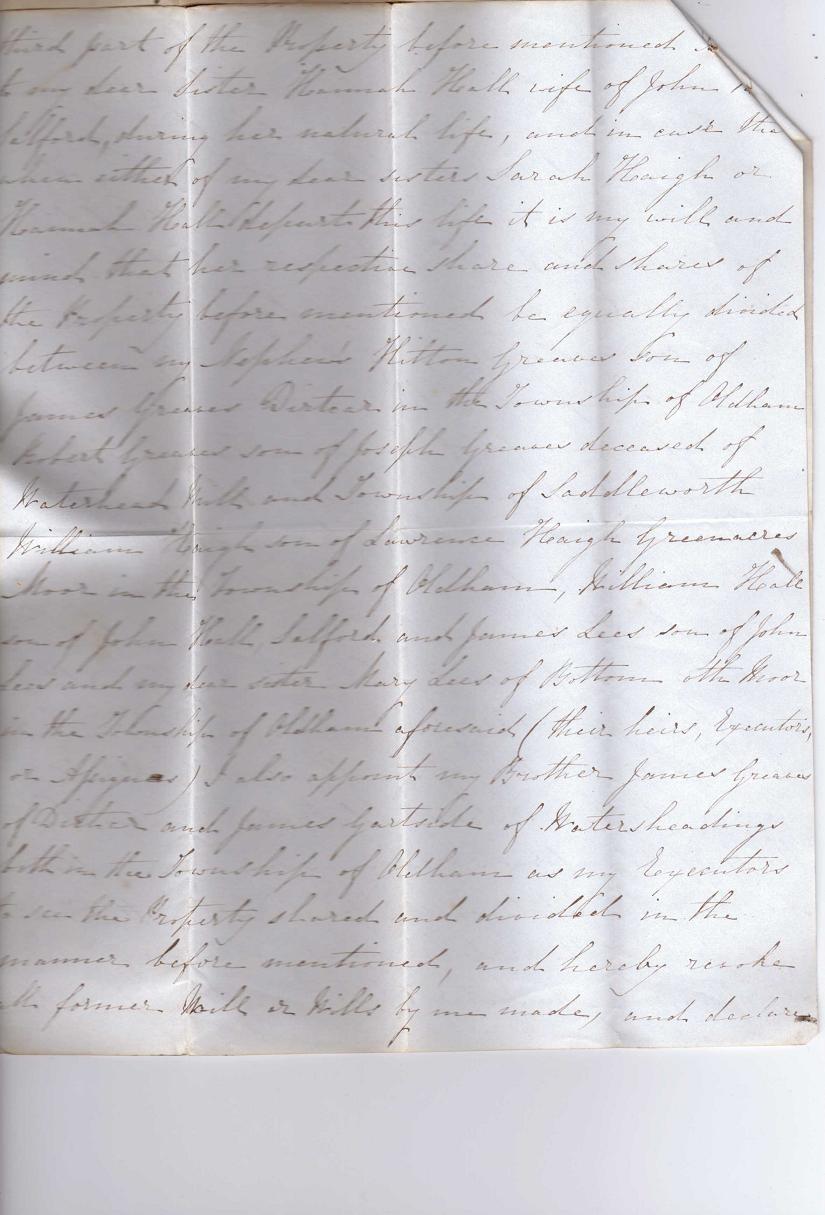 third part of the Property before mentioned
to my dear Sister Hannah Hall wife of John
Salford, during her natural life, and in case the
when either of my dear sisters Sarah Haigh or
Hannah Hall depart this life it is my will and
mind that her respective share and shares of
the Property before mentioned be equally divided
between my Nephew's Hilton Greaves Son of
James Greaves Dirtcar in the Township of Oldham
Robert Greaves son of Joseph Greaves deceased of
Waterhead Mill and Township of Saddleworth
William Haigh son of Lawrence Haigh Greenacres
Moor in the Township of Oldham, William Hall
son of John Hall, Salford and James Lees son of John
Lees and my dear sister Mary Lees of Bottom oth Moor
in the Township of Oldham aforesaid (their heirs, Executors,
or Assignes) I also appoint my Brother James Greaves
of Dirtcar and James Gartside of Watersheadings
both in the Township of Oldham as my Executors
to see the Property shared and divided in the
manner before mentioned, and hereby revoke
all former Will or Wills by me made, and declare